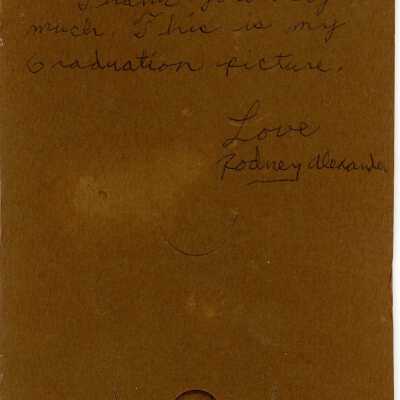 Thank you very
much. This is my
Graduation picture.
Love
Rodney Alexander